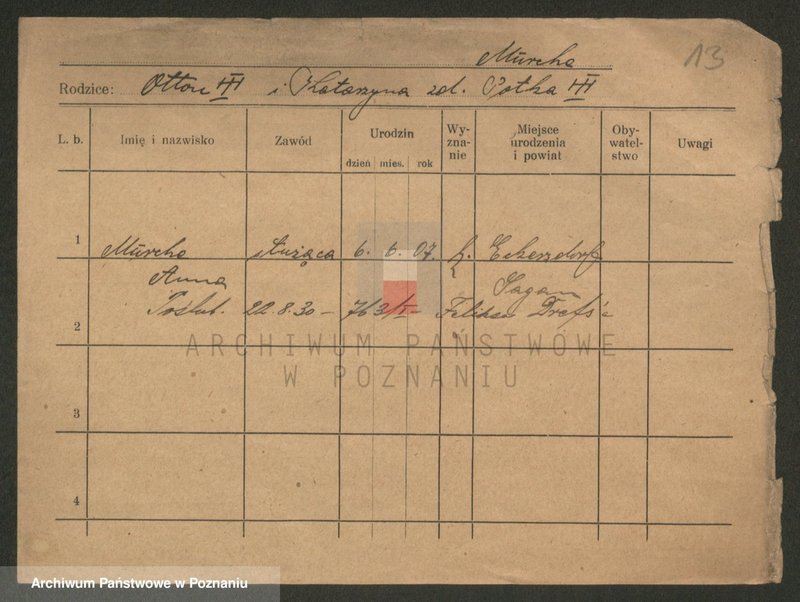 Murcha
13
Rodzice: Otton i Katarzyna zd. Potka
L. b. Imię i nazwisko Zawód Urodzin dzień mies. rok Wy-zna-nie Miejsce urodzenia i powiat Oby-watel-stwo Uwagi
1 Murcha służąca 6. 6. 07. Eckersdorf
Anna Sagan
Poślub. 22.8.30 – 763/I – Feliksa Drefs'a
2
ARCHIWUM PAŃSTWOWE
W POZNANIU
3
4
Archiwum Państwowe w Poznaniu